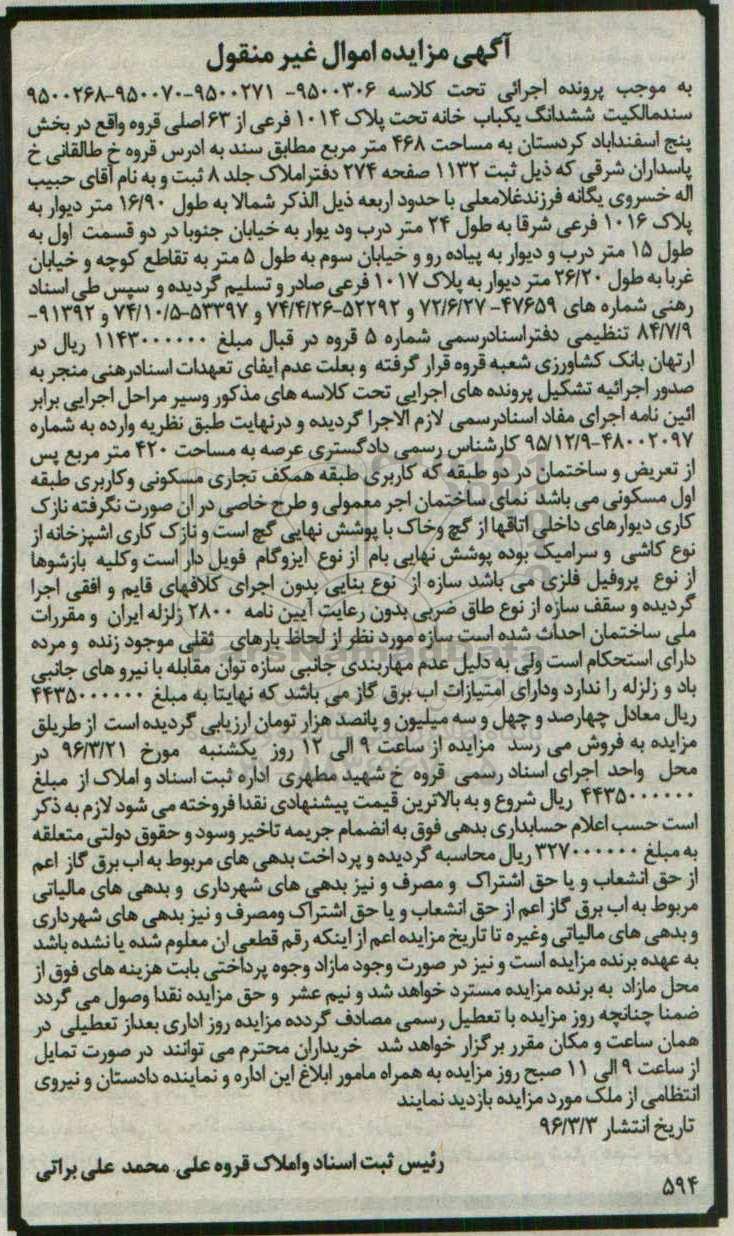 آگهی مزایده اموال غیر منقول
به موجب پرونده اجرائی تحت کلاسه ۹۵۰۰۳۰۶- ۹۵۰۰۲۷۱-۹۵۰۰۷۰-۹۵۰۰۲۶۸
سندمالکیت ششدانگ یکباب خانه تحت پلاک ۱۰۱۴ فرعی از ۶۳ اصلی قروه واقع در بخش
پنج اسفنداباد کردستان به مساحت ۴۶۸ متر مربع مطابق سند به ادرس قروه خ طالقانی خ
پاسداران شرقی که ذیل ثبت ۱۱۳۲ صفحه ۲۷۴ دفتراملاک جلد ۸ ثبت و به نام آقای حبیب
اله خسروی یگانه فرزندغلامعلی با حدود اربعه ذیل الذکر شمالا به طول ۱۶/۹۰ متر دیوار به
پلاک ۱۰۱۶ فرعی شرقا به طول ۲۴ متر درب ود یوار به خیابان جنوبا در دو قسمت اول به
طول ۱۵ متر درب و دیوار به پیاده رو و خیابان سوم به طول ۵ متر به تقاطع کوچه و خیابان
غربا به طول ۲۶/۲۰ متر دیوار به پلاک ۱۰۱۷ فرعی صادر و تسلیم گردیده و سپس طی اسناد
رهنی شماره های ۴۷۶۵۹- ۷۲/۶/۲۷ و ۵۲۲۹۲-۷۴/۴/۲۶ و ۵۳۳۹۷-۷۴/۱۰/۵ و ۹۱۳۹۲-
۸۴/۷/۹ تنظیمی دفتراسنادرسمی شماره ۵ قروه در قبال مبلغ ۱۱۴۳۰۰۰۰۰۰ ریال در
ارتهان بانک کشاورزی شعبه قروه قرار گرفته و بعلت عدم ایفای تعهدات اسنادرهنی منجر به
صدور اجرائیه تشکیل پرونده های اجرایی تحت کلاسه های مذکور وسیر مراحل اجرایی برابر
ائین نامه اجرای مفاد اسنادرسمی لازم الاجرا گردیده و درنهایت طبق نظریه وارده به شماره
۴۸۰۰۲۰۹۷-۹۵/۱۲/۹ کارشناس رسمی دادگستری عرصه به مساحت ۴۲۰ متر مربع پس
از تعریض و ساختمان در دو طبقه که کاربری طبقه همکف تجاری مسکونی وکاربری طبقه
اول مسکونی می باشد نمای ساختمان اجر معمولی و طرح خاصی در ان صورت نگرفته نازک
کاری دیوارهای داخلی اتاقها از گچ وخاک با پوشش نهایی گچ است و نازک کاری اشپزخانه از
نوع کاشی و سرامیک بوده پوشش نهایی بام از نوع ایزوگام فویل دار است وکلیه بازشوها
از نوع پروفیل فلزی می باشد سازه از نوع بنایی بدون اجرای کلافهای قایم و افقی اجرا
گردیده و سقف سازه از نوع طاق ضربی بدون رعایت آیین نامه ۲۸۰۰ زلزله ایران و مقررات
ملی ساختمان احداث شده است سازه مورد نظر از لحاظ بارهای ثقلی موجود زنده و مرده
دارای استحکام است ولی به دلیل عدم مهاربندی جانبی سازه توان مقابله با نیرو های جانبی
باد و زلزله را ندارد ودارای امتیازات اب برق گاز می باشد که نهایتا به مبلغ ۴۴۳۵۰۰۰۰۰۰
ریال معادل چهارصد و چهل و سه میلیون و پانصد هزار تومان ارزیابی گردیده است از طریلق
مزایده به فروش می رسد مزایده از ساعت ۹ الی ۱۲ روز یکشنبه مورخ ۹۶/۳/۲۱ در
محل واحد اجرای اسناد رسمی قروه خ شهید مطهری اداره ثبت اسناد و املاک از مبلغ
۴۴۳۵۰۰۰۰۰۰ ریال شروع و به بالاترین قیمت پیشنهادی نقدا فروخته می شود لازم به ذکر
است حسب اعلام حسابداری بدهی فوق به انضمام جریمه تاخیر وسود و حقوق دولتی متعلقه
به مبلغ ۳۲۷۰۰۰۰۰۰ ریال محاسبه گردیده و پرد اخت بدهی های مربوط به اب برق گاز اعم
از حق انشعاب و یا حق اشتراک و مصرف و نیز بدهی های شهرداری و بدهی های مالیاتی
مربوط به اب برق گاز اعم از حق انشعاب و یا حق اشتراک ومصرف و نیز بدهی های شهرداری
و بدهی های مالیاتی وغیره تا تاریخ مزایده اعم از اینکه رقم قطعی ان معلوم شده یا نشده باشد
به عهده برنده مزایده است و نیز در صورت وجود مازاد وجوه پرداختی بابت هزینه های فوق از
محل مازاد به برنده مزایده مسترد خواهد شد و نیم عشر و حق مزایده نقدا وصول می گردد
ضمنا چنانچه روز مزایده با تعطیل رسمی مصادف گردده مزایده روز اداری بعداز تعطیلی در
همان ساعت و مکان مقرر برگزار خواهد شد خریداران محترم می توانند در صورت تمایل
از ساعت ۹ الی ۱۱ صبح روز مزایده به همراه مامور ابلاغ این اداره و نماینده دادستان و نیروی
انتظامی از ملک مورد مزایده بازدید نمایند
تاریخ انتشار ۹۶/۳/۳
رئیس ثبت اسناد واملاک قروه علی محمد علی براتی
۵۹۴
ParsNamadData